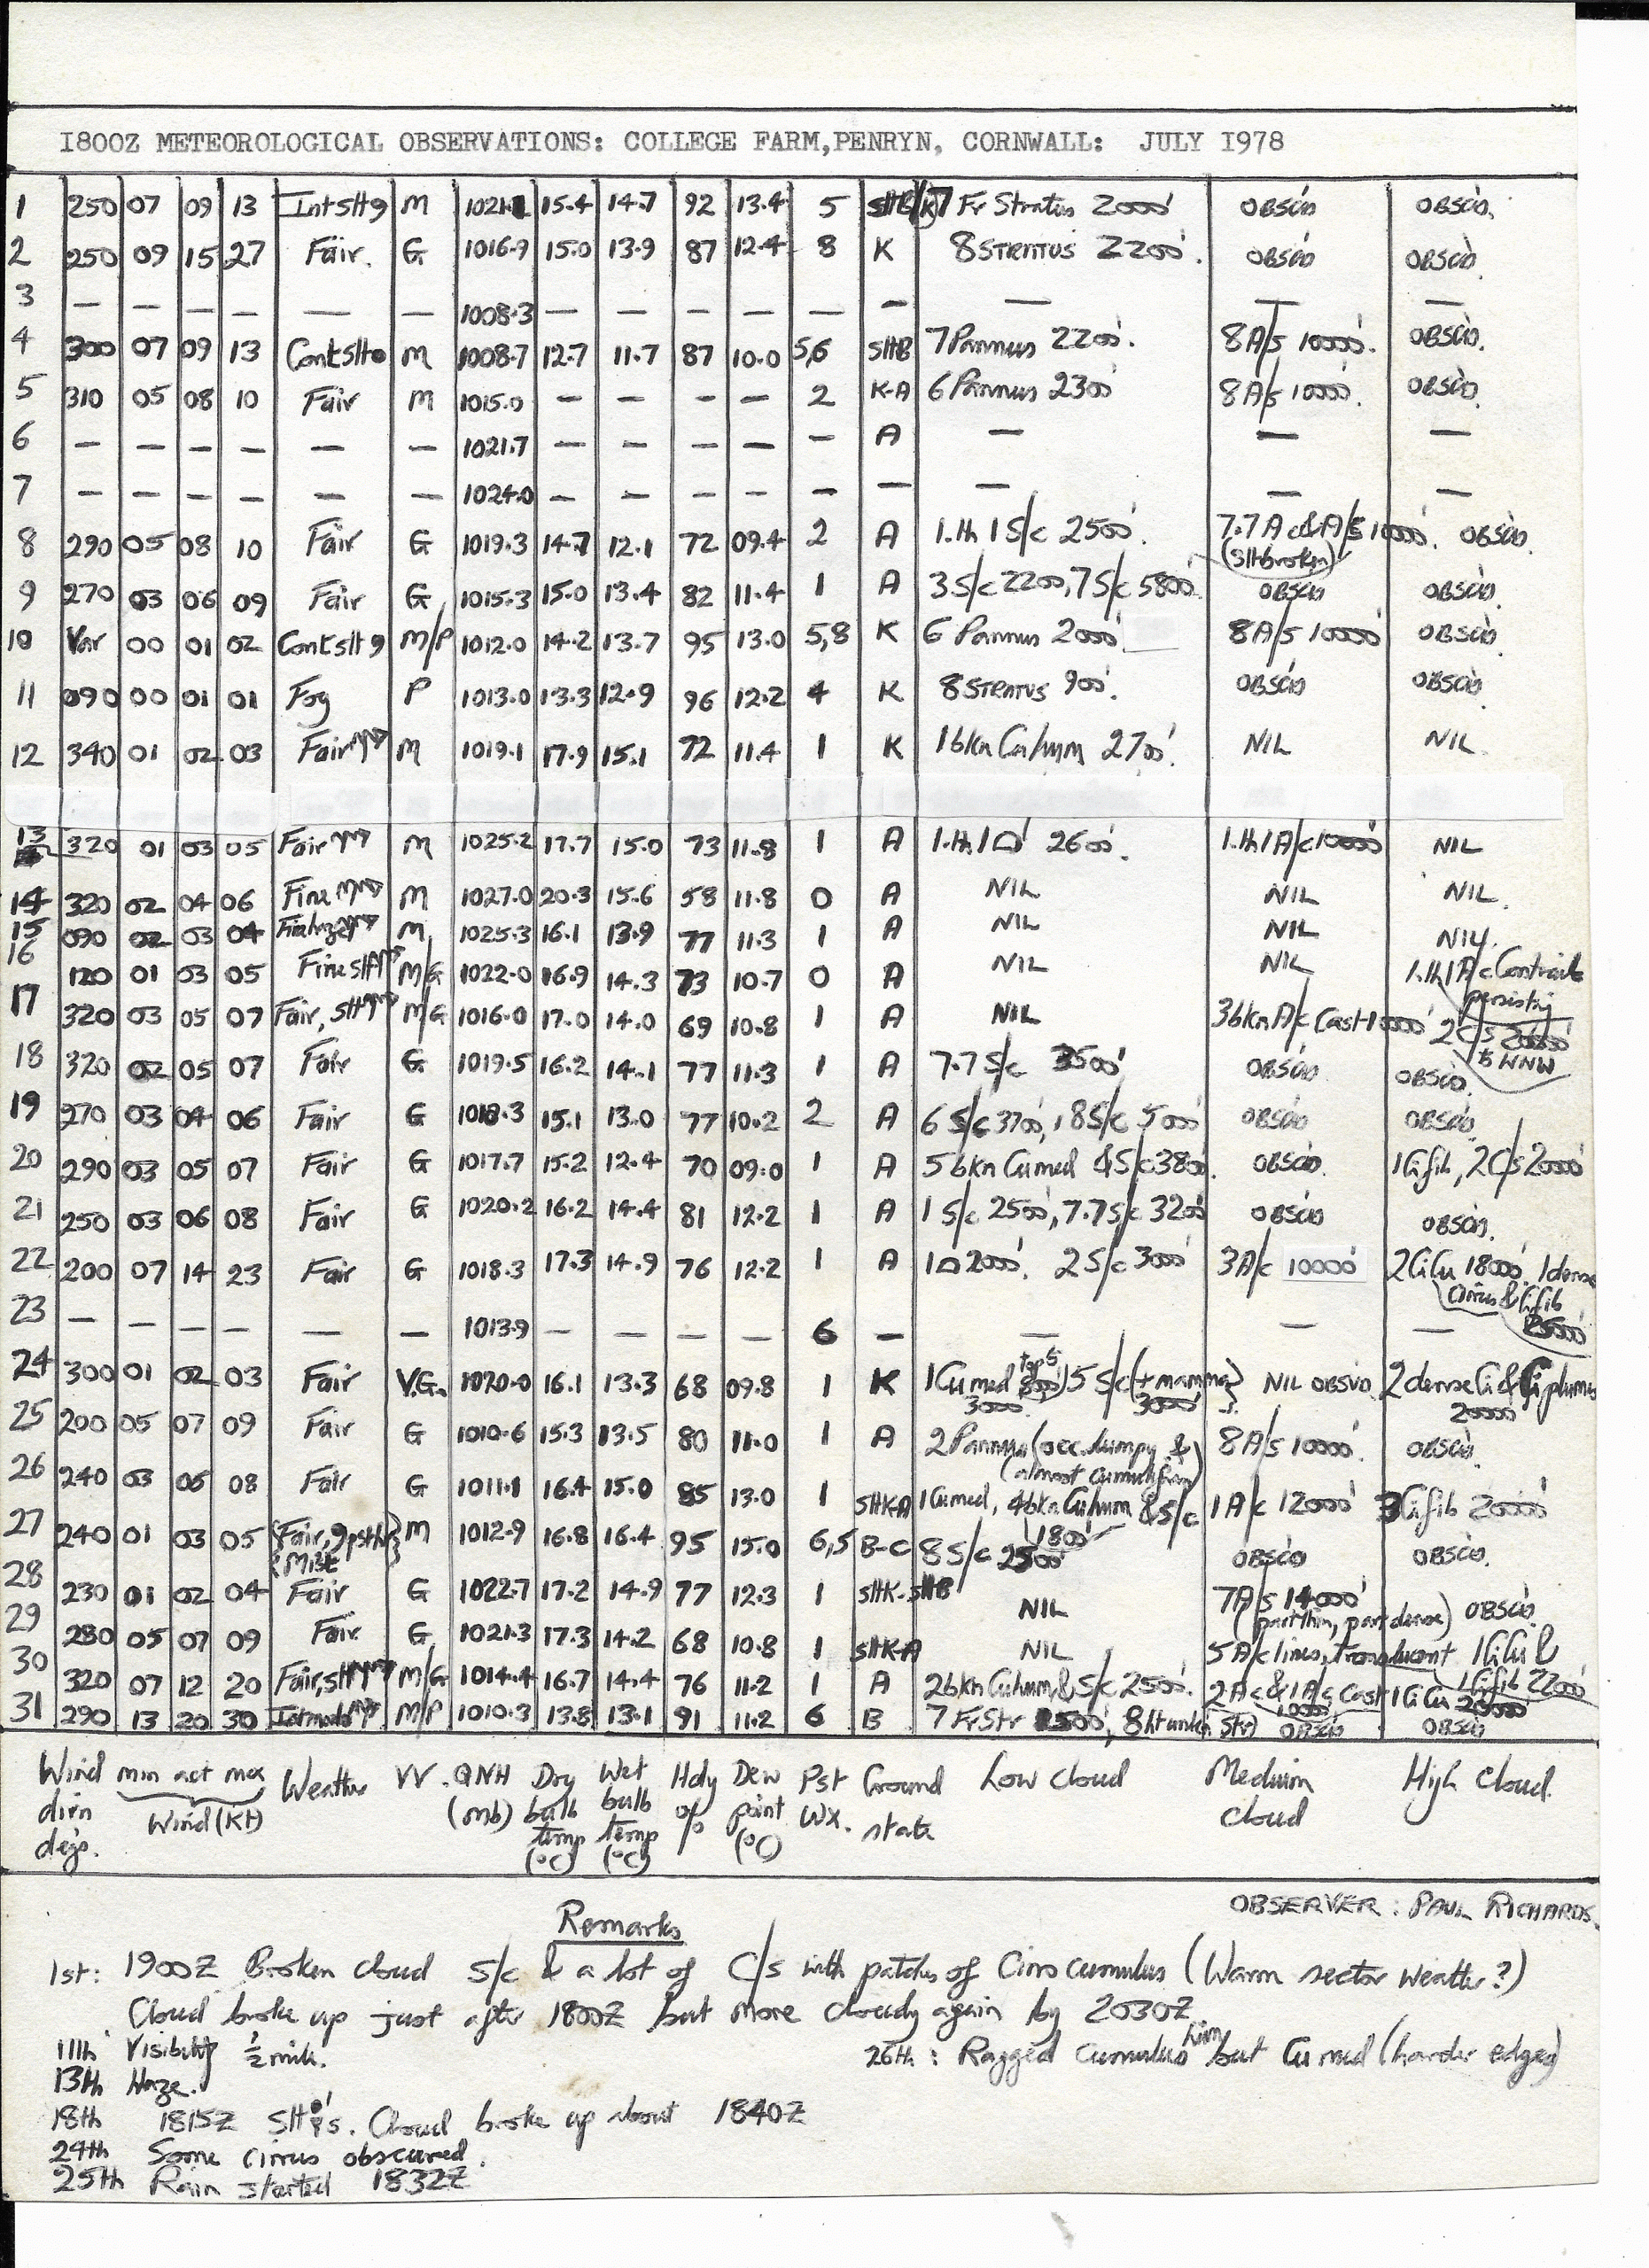 1800Z METEOROLOGICAL OBSERVATIONS: COLLEGE FARM, PENRYN, CORNWALL: JULY 1978
1 250 07 09 13 Int slt 9 M 15.4 14.7 92 13.4 5 7 Fr Stratus 2000' OBSCD OBSCD.
2 250 09 15 27 Fair. G 1016.9 15.0 13.9 87 12.4 8 K 8 STRATUS 2200'. OBSCD OBSCD.
3 — — — — — — 1008.3 — — — — — — — — —
4 300 07 09 13 Cont slt M 1008.7 12.7 11.7 87 10.0 5,6 SltB 7 Pannus 2200'. 8 A/s 10000'. OBSCD.
5 310 05 08 10 Fair M 1015.0 — — — — 2 K-A 6 Pannus 2300' 8 A/s 10000'. OBSCD.
6 — — — — — — 1021.7 — — — — — A — — —
7 — — — — — — 1024.0 — — — — — — — — —
8 290 05 08 10 Fair G 1019.3 14.7 12.1 72 09.4 2 A 1.th 1 S/c 2500'. 7.7 Ac & A/s 10000'. OBSCD.
(Slt broken)
9 270 03 06 09 Fair G 1015.3 15.0 13.4 82 11.4 1 A 3 S/c 2200, 7 S/c 5800' OBSCD OBSCD.
10 Var 00 01 02 Cont slt 9 M/P 1012.0 14.2 13.7 95 13.0 5,8 K 6 Pannus 2000' 8 A/s 10000' OBSCD.
11 090 00 01 01 Fog P 1013.0 13.3 12.9 96 12.2 4 K 8 STRATUS 900'. OBSCD OBSCD.
12 340 01 02 03 Fair M 1019.1 17.9 15.1 72 11.4 1 K 1 bkn Cu hum 2700'. NIL NIL.
13 320 01 03 05 Fair M 1025.2 17.7 15.0 73 11.8 1 A 1.th 1 2600'. 1.th 1 A/c 10000' NIL
14 320 02 04 06 Fine M 1027.0 20.3 15.6 58 11.8 0 A NIL NIL NIL.
15 090 02 03 04 M 1025.3 16.1 13.9 77 11.3 1 A NIL NIL NIL.
16 120 01 03 05 Fine slt M/G 1022.0 16.9 14.3 73 10.7 0 A NIL NIL 1.th 1 Contrails
persisting
17 320 03 05 07 Fair, slt M/G 1016.0 17.0 14.0 69 10.8 1 A NIL 3 bkn A/c Cast 10000' 2 C/s 20000'
to WNW
18 320 02 05 07 Fair G 1019.5 16.2 14.1 77 11.3 1 A 7.7 S/c 3500' OBSCD OBSCD.
19 270 03 04 06 Fair G 1018.3 15.1 13.0 77 10.2 2 A 6 S/c 3700', 8 S/c 5000' OBSCD OBSCD.
20 290 03 05 07 Fair G 1017.7 15.2 12.4 70 09.0 1 A 5 bkn Cu med & S/c 3800'. OBSCD. 1 Ci fib, 2 C/s 20000'
21 250 03 06 08 Fair G 1020.2 16.2 14.4 81 12.2 1 A 1 S/c 2500', 7.7 S/c 3200' OBSCD OBSCD.
22 200 07 14 23 Fair G 1018.3 17.3 14.9 76 12.2 1 A 1 2000'. 2 S/c 3000' 3 A/c 10000' 2 CiCu 18000'. 1 dense
cirrus & Ci fib
25000'
23 — — — — — — 1013.9 — — — — 6 — — — —
24 300 01 02 03 Fair V.G. 1020.0 16.1 13.3 68 09.8 1 K 1 Cu med tops 3000' 5 S/c (+ mamma) 3000' NIL OBSVD. 2 dense Ci & Ci plumes
20000'
25 200 05 07 09 Fair G 1010.6 15.3 13.5 80 11.0 1 A 2 Pannus (occ. lumpy & 8 A/s 10000'. OBSCD.
almost cumuliform)
26 240 03 06 08 Fair G 1011.1 16.4 15.0 85 13.0 1 SltK-A 1 Cu med, 4 bkn Cu hum & S/c 1800' 1 A/c 12000' 3 Ci fib 20000'
27 240 01 03 05 {Fair, 9 pst hr} M 1012.9 16.8 16.4 95 15.0 6,5 B-C 8 S/c 2500' OBSCD OBSCD.
{Mist
28 230 01 02 04 Fair G 1022.7 17.2 14.9 77 12.3 1 SltK-SltB NIL 7 A/s 14000' OBSCD
(part thin, part dense)
29 280 05 07 09 Fair G 1021.3 17.3 14.2 68 10.8 1 SltK-A NIL 5 A/c lines, translucent 1 CiCu &
1 Ci fib 22000'
30 320 07 12 20 Fair, slt M/G 1014.4 16.7 14.4 76 11.2 1 A 2 bkn Cu hum & S/c 2500'. 2 Ac & 1 A/c Cast 10000' 1 CiCu 20000'
31 290 13 20 30 M/P 1010.3 13.8 13.1 91 11.2 6 B 7 Fr Str 1500', OBSCD OBSCD
Wind dirn degs. min act max Wind (Kt) Weather VV. QNH (mb) Dry bulb temp (°C) Wet bulb temp (°C) Hdy % Dew point (°C) Pst Wx. Ground state Low cloud Medium cloud High cloud.
OBSERVER: PAUL RICHARDS.
Remarks
1st: 1900Z Broken cloud S/c & a lot of C/s with patches of Cirrocumulus (Warm sector weather?)
Cloud broke up just after 1800Z but more cloudy again by 2030Z
11th Visibility ½ mile.
26th: Ragged cumulus hum but Cu med (harder edges)
13th Haze.
18th 1815Z Slt. Cloud broke up about 1840Z
24th Some cirrus obscured.
25th Rain started 1832Z